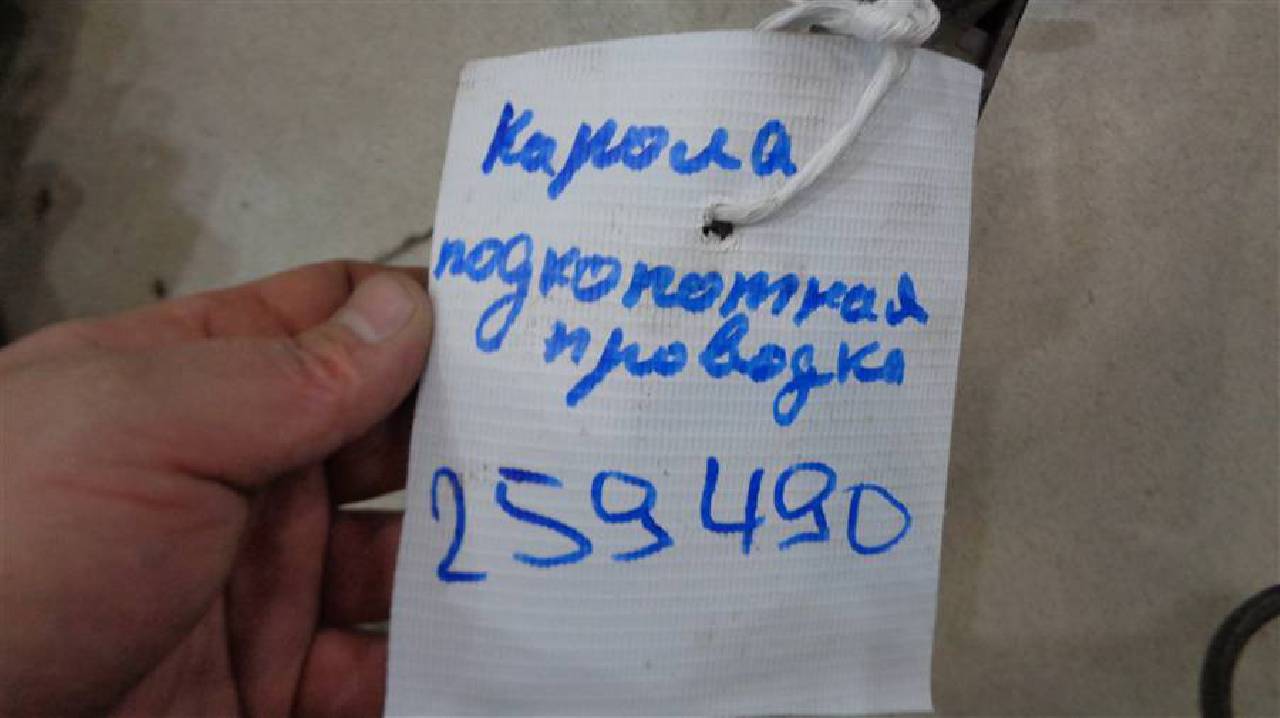 Карола
подкопотная
проводка
259490